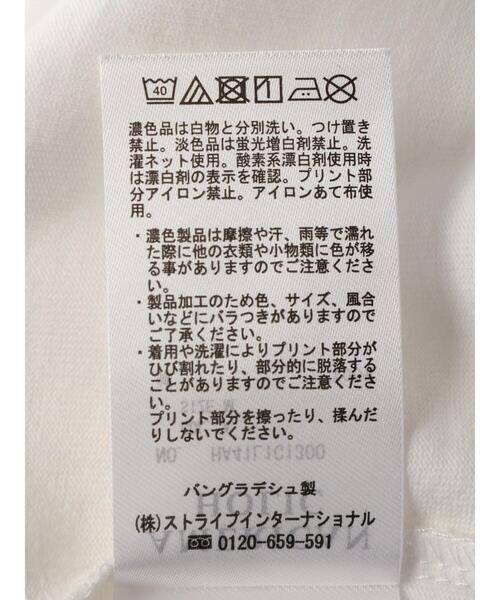 40
濃色品は白物と分別洗い。つけ置き
禁止。淡色品は蛍光増白剤禁止。洗
濯ネット使用。酸素系漂白剤使用時
は漂白剤の表示を確認。プリント部
分アイロン禁止。アイロンあて布使
用。
・濃色製品は摩擦や汗、雨等で濡れ
た際に他の衣類や小物類に色が移
る事がありますのでご注意くださ
い。
・製品加工のため色、サイズ、風合
いなどにバラつきがありますので
ご了承ください。
・着用や洗濯によりプリント部分が
ひび割れたり、部分的に脱落する
ことがありますのでご注意くださ
い。
プリント部分を擦ったり、揉んだ
りしないでください。
NO. HA41L1C1300
バングラデシュ製
(株)ストライプインターナショナル
0120-659-591